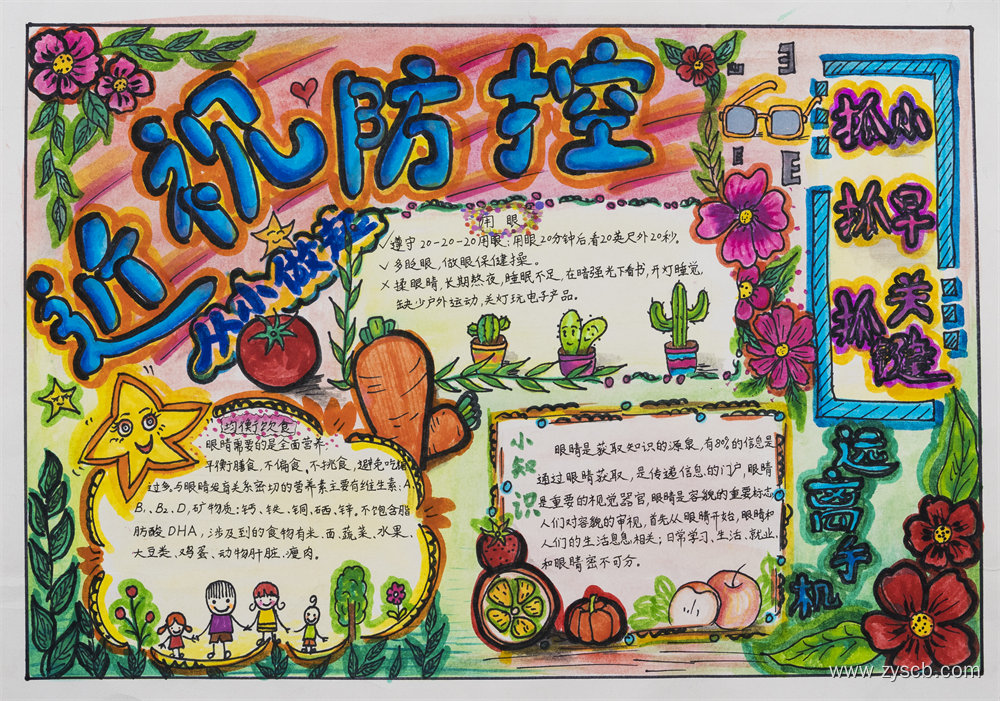 近视防控
从小做起
用眼
✓ 遵守20-20-20用眼:用眼20分钟后看20英尺外20秒。
✓ 多眨眼,做眼保健操。
× 揉眼睛,长期熬夜,睡眠不足,在暗强光下看书,开灯睡觉,
缺少户外运动,关灯玩电子产品。
E
E
抓小
抓早
抓关键
远离手机
均衡饮食
眼睛需要的是全面营养.
平衡膳食,不偏食,不挑食,避免吃糖
过多与眼睛发育关系密切的营养素主要有维生素:A、
B₁、B₂、D,矿物质:钙、铁、铜、硒、锌,不饱合脂
肪酸DHA,涉及到的食物有米、面、蔬菜、水果、
大豆类、鸡蛋、动物肝脏、瘦肉。
小知识
眼睛是获取知识的源泉,有80%的信息是
通过眼睛获取,是传递信息的门户,眼睛
是重要的视觉器官,眼睛是容貌的重要标志,
人们对容貌的审视,首先从眼睛开始,眼睛和
人们的生活息息相关;日常学习、生活、就业、
和眼睛密不可分。
www.zyscb.com